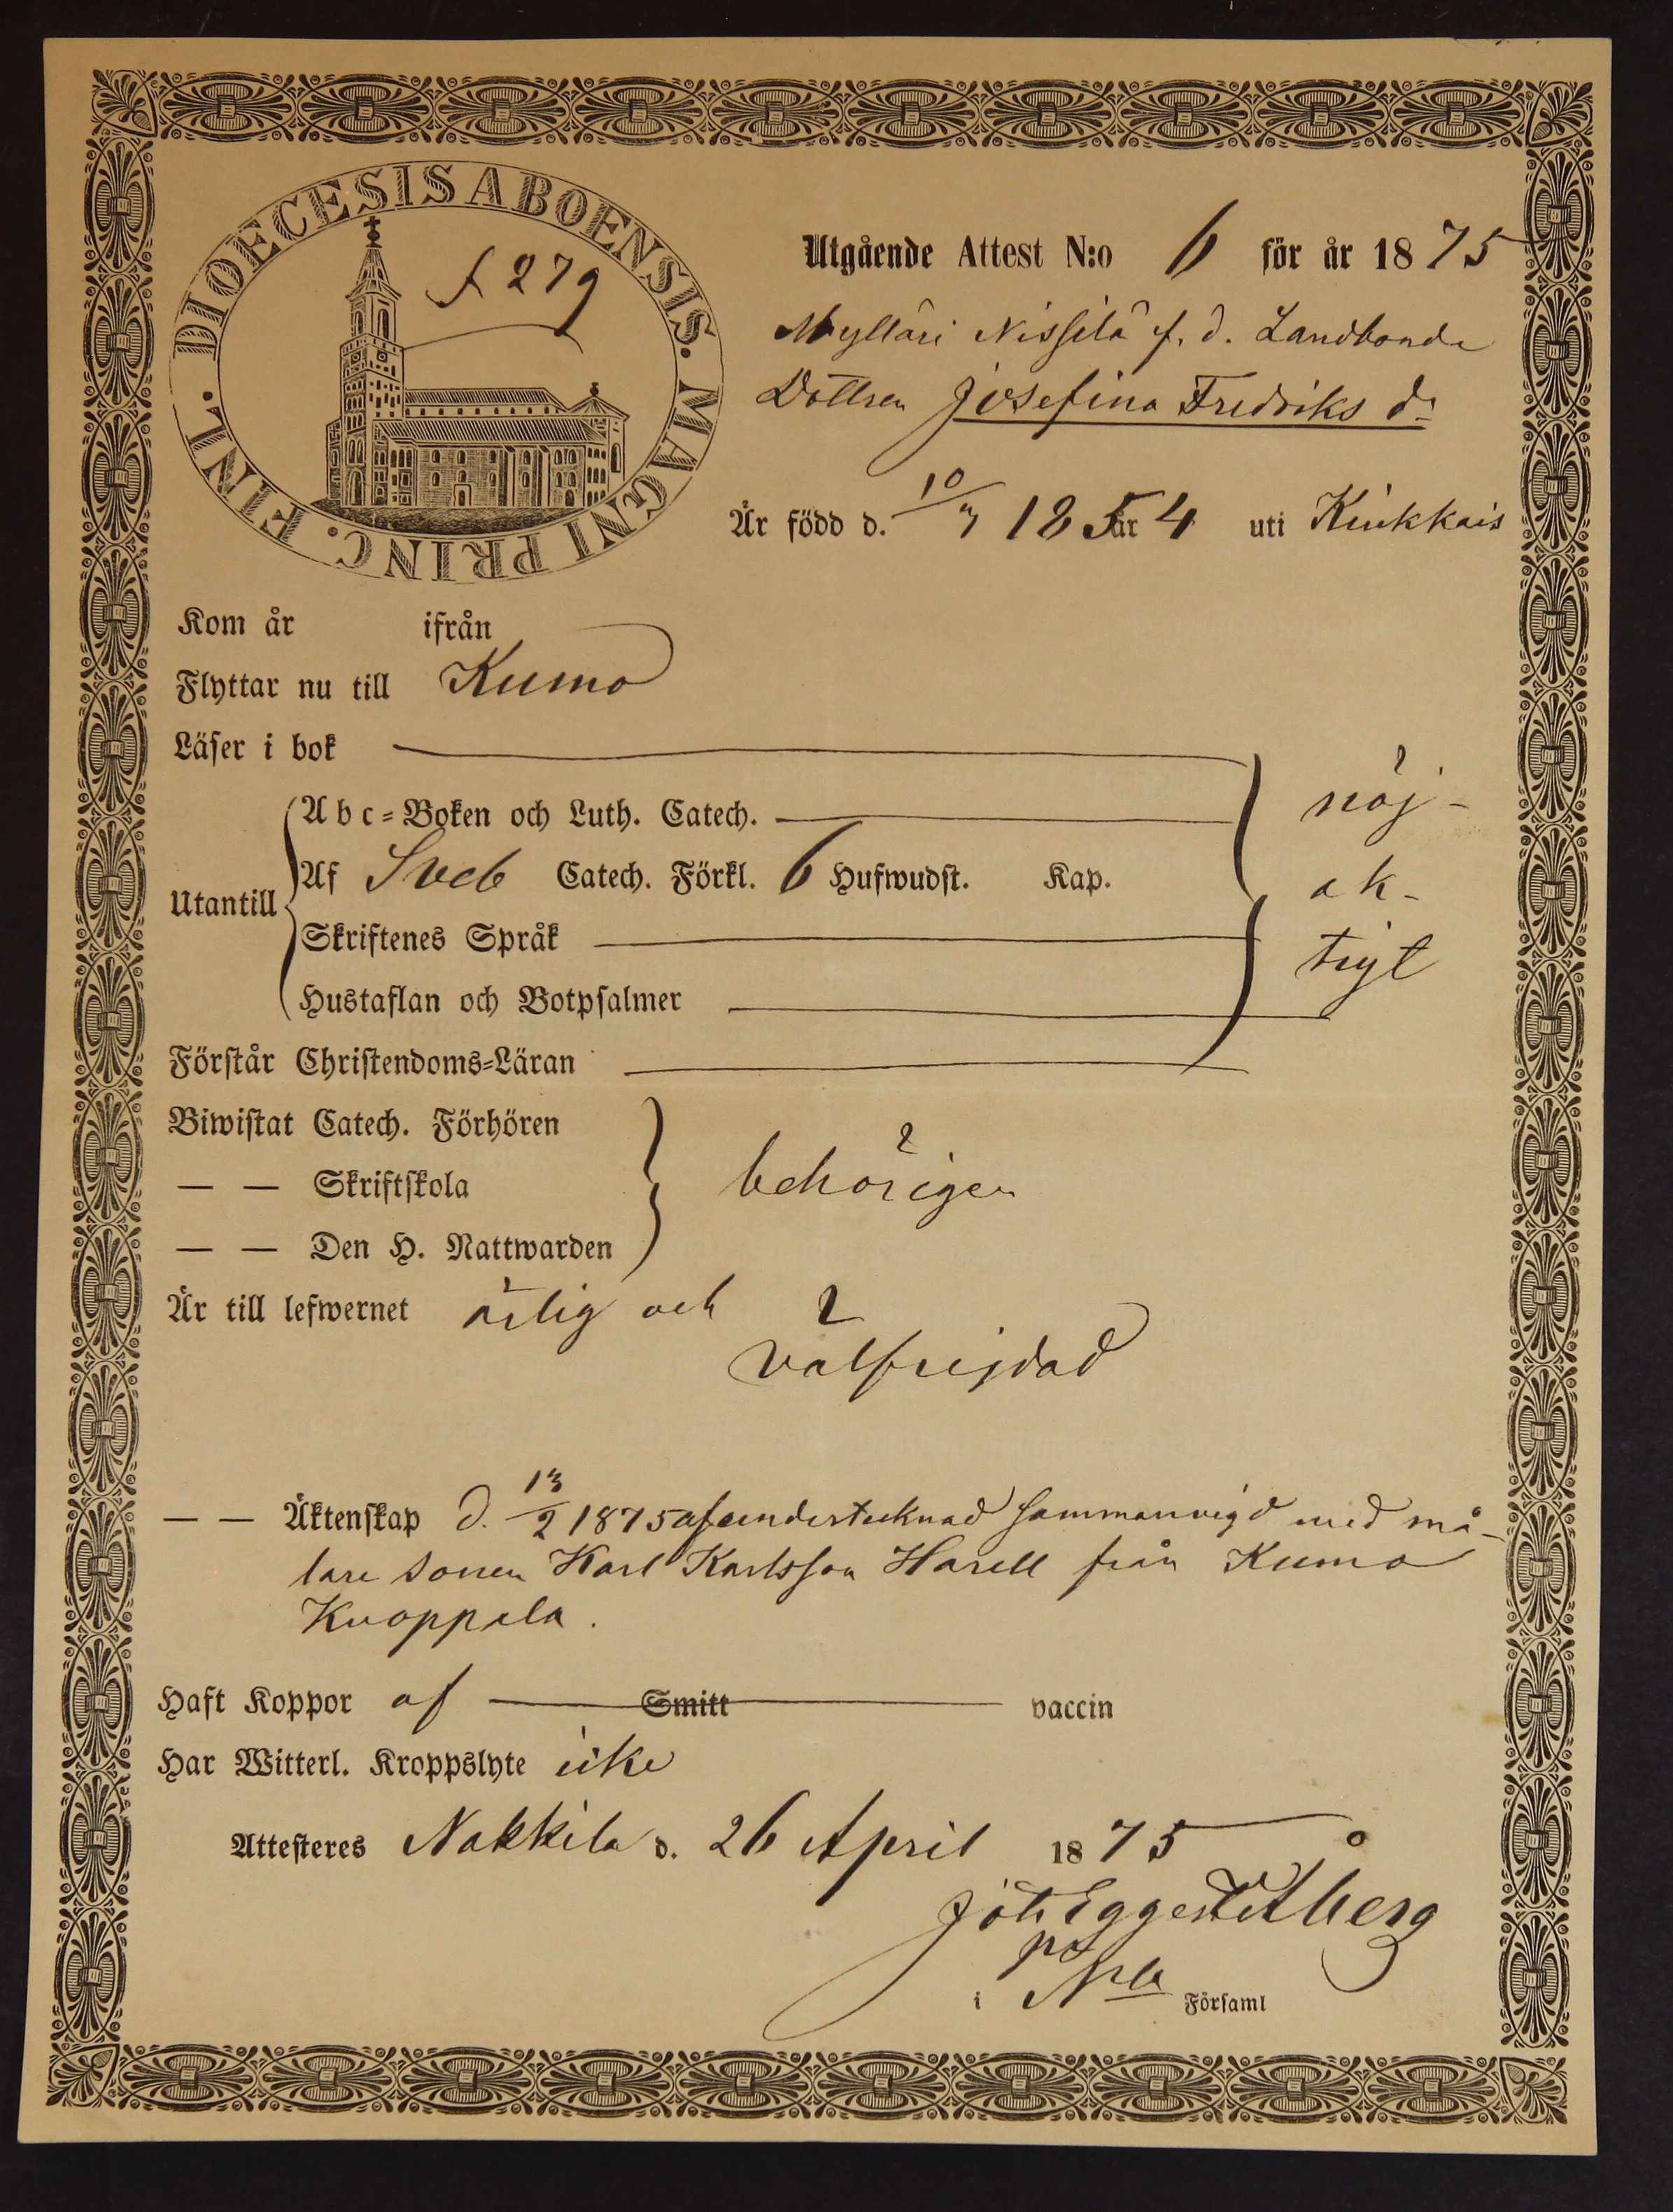 DIOECESIS ABOENSIS. MAGNI PRINC. FINL.
f 279
Utgående Attest N:o 6 för år 1875
Mylläri Nissilä f. d. Landbonde
Dottren Josefina Fredriks dr
Är född d. 10/7 1854 år uti Kiukkais
Kom år ifrån
Flyttar nu till Kumo
Läser i bok
Abc-Boken och Luth. Catech.
Utantill
Af Sveb Catech. Förkl. 6 Hufwudst. Kap.
Skriftenes Språk
Hustaflan och Botpsalmer
Förstår Christendoms-Läran
nöj-
ak-
tigt
Biwistat Catech. Förhören
— — Skriftskola
— — Den H. Nattwarden
behörigen
Är till lefwernet ärlig och
välfrejdad
— — Äktenskap d. 13/2 1875 af undertecknad sammanvigd med må-
lare sonen Karl Karlsson Harell från Kumo
Kuoppala.
Haft Koppor af Smitt vaccin
Har Witterl. Kroppslyte icke
Attesteres Nakkila d. 26 April 1875
Joh Eggert Åberg
i Församl